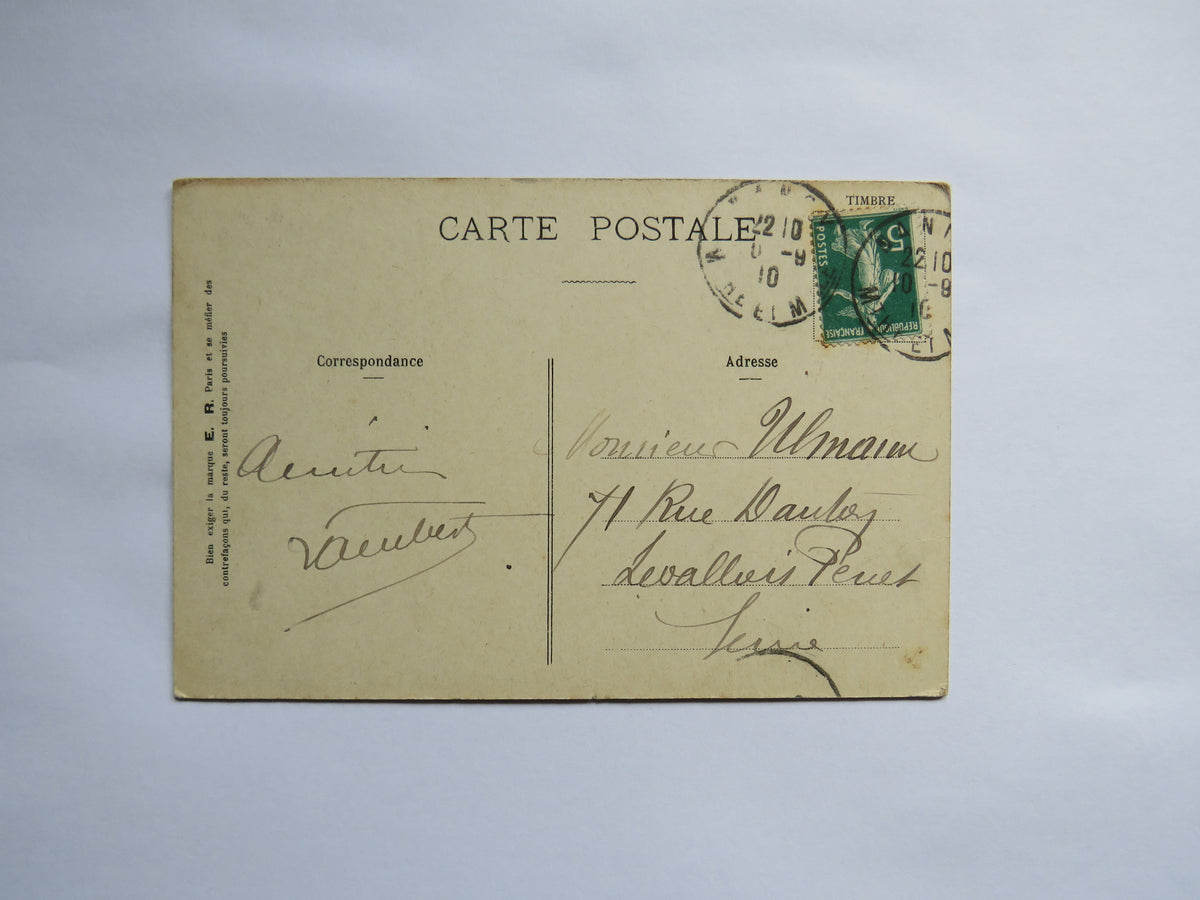 CARTE POSTALE
TIMBRE
5
POSTES
REPUBLIQUE FRANÇAISE
22 10
10 -9
10
22 10
10 -9
10
Correspondance
Adresse
Bien exiger la marque E. R. Paris et se méfier des
contrefaçons qui, du reste, seront toujours poursuivies
Lambert
Monsieur Ulmann
71 Rue
Levallois Perret
Seine